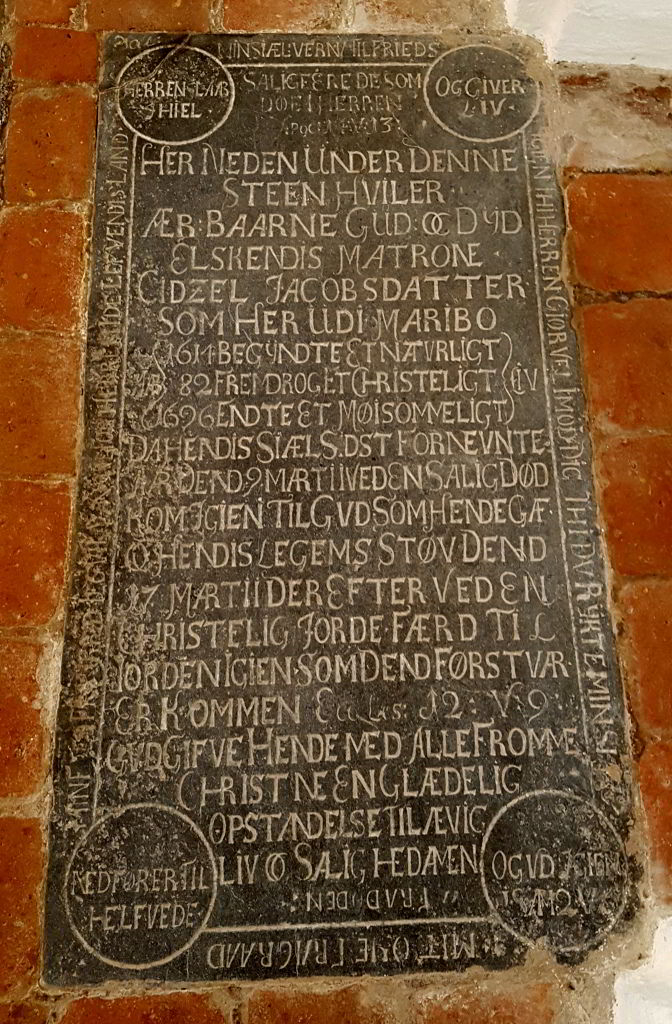 MIN SIÆL: VERN/TILFRIEDS
HERREN SLAAR
IHIEL
SALIG ERE DE SOM
DØE I HERREN
OG GIVER
LIV
HER NEDEN UNDER DENNE
STEEN HVILER
ÆR·BAARNE GUD: OC DYD
ELSKENDIS MATRONE
CIDZEL JACOBSDATTER
SOM HER UDI MARIBO
1614 BEGYNDTE ET NATURLIGT
82 FREMDROG ET CHRISTELIGT LIV
1696 ENDTE ET MØISOMMELIGT
DA HENDIS SIÆL S:DST FORNEVNTE
AAR DEND 9 MARTII VED EN SALIG DØD
KOM IGIEN TIL GVD SOM HENDE GAF
OC HENDIS LEGEMS STØV DEND
17 MARTII DER EFTER VED EN
CHRISTELIG JORDE·FÆRD TIL
JORDEN IGIEN·SOM DEND FØRST VAR
ER KOMMEN Eccles: 12: V: 9
GUD GIFVE HENDE MED ALLE FROMME
CHRISTNE EN GLÆDELIG
OPSTANDELSE TIL ÆVIG
LIV OC SALIGHED AMEN
NEDFØRER TIL
HELFVEDE
OG UD IGIEN
FRA DØDEN
MIT ØYE FRA GRAAD